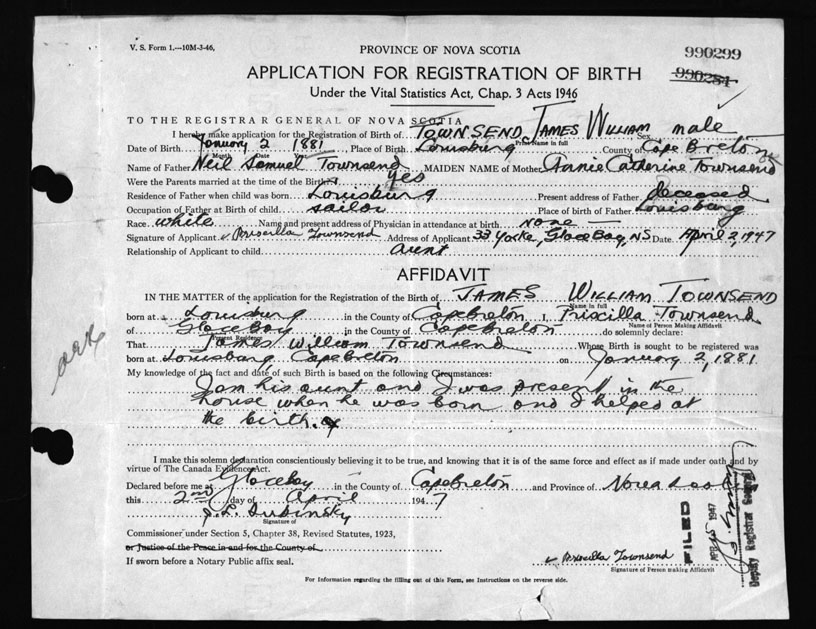 V. S. Form 1.—10M-3-46,
PROVINCE OF NOVA SCOTIA
990299
990284
APPLICATION FOR REGISTRATION OF BIRTH
Under the Vital Statistics Act, Chap. 3 Acts 1946
TO THE REGISTRAR GENERAL OF NOVA SCOTIA
I hereby make application for the Registration of Birth of TOWNSEND, JAMES WILLIAM Sex male
Print Name in full
Date of Birth January 2 1881 Place of Birth Louisburg County of Cape Breton
Month Date Year
Name of Father Neil Samuel Townsend MAIDEN NAME of Mother Annie Catherine Townsend
Were the Parents married at the time of the Birth? yes
Residence of Father when child was born Louisburg Present address of Father deceased
Occupation of Father at Birth of child sailor Place of birth of Father Louisburg
Race white Name and present address of Physician in attendance at birth none
Signature of Applicant Priscilla Townsend Address of Applicant 33 Yorke, Glace Bay, NS Date April 2, 1947
Relationship of Applicant to child aunt
AFFIDAVIT
IN THE MATTER of the application for the Registration of the Birth of JAMES WILLIAM TOWNSEND
Name in full
born at Louisburg in the County of Cape Breton I, Priscilla Townsend
Name of Person Making Affidavit
of Glace Bay in the County of Cape Breton do solemnly declare:
Present Residence
That James William Townsend Whose Birth is sought to be registered was
born at Louisburg Cape Breton on January 2, 1881
My knowledge of the fact and date of such Birth is based on the following Circumstances:
I am his aunt and I was present in the
house when he was born and I helped at
the birth.
I make this solemn declaration conscientiously believing it to be true, and knowing that it is of the same force and effect as if made under oath and by
virtue of The Canada Evidence Act.
Declared before me at Glace Bay in the County of Cape Breton and Province of Nova Scotia
this 2nd day of April 1947
J. L. Dubinsky
Signature of
Commissioner under Section 5, Chapter 38, Revised Statutes, 1923,
or Justice of the Peace in and for the County of
If sworn before a Notary Public affix seal.
Priscilla Townsend
Signature of Person making Affidavit
For Information regarding the filling out of this Form, see Instructions on the reverse side.
FILED
APR 15 1947
Deputy Registrar General